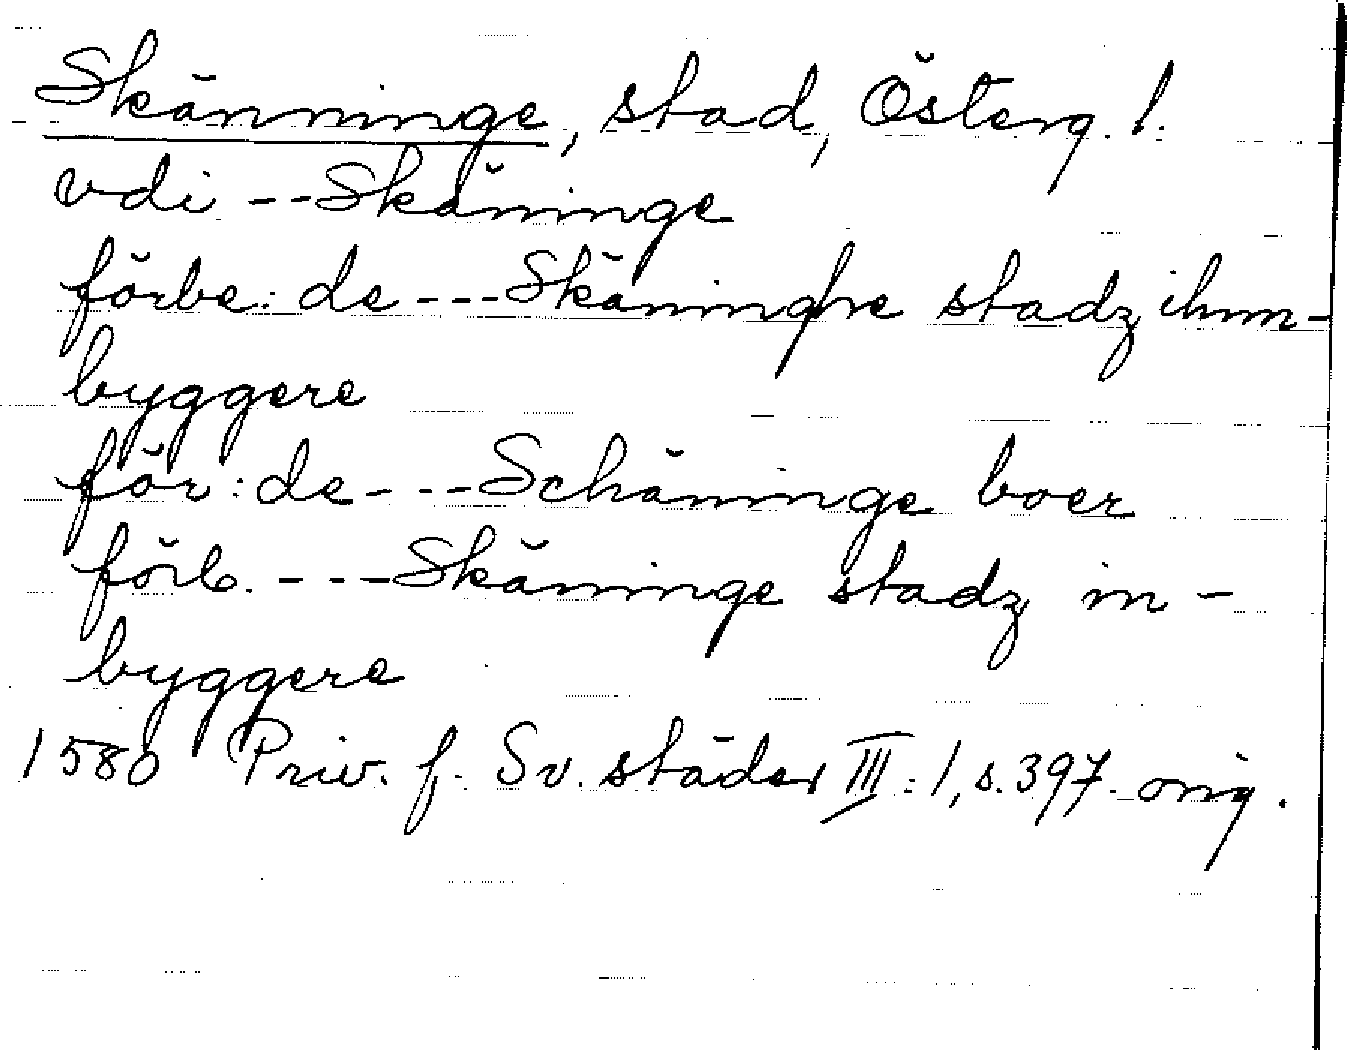 Skänninge, stad, Österg. l.
vdi --- Skäninge
förbe: de --- Skäninghe stadz ihnn-
byggere
för: de --- Schäninge boer
förb. --- Skäninge stadz in-
byggere
1580 Priv. f. Sv. städer III:1, s. 397. orig.